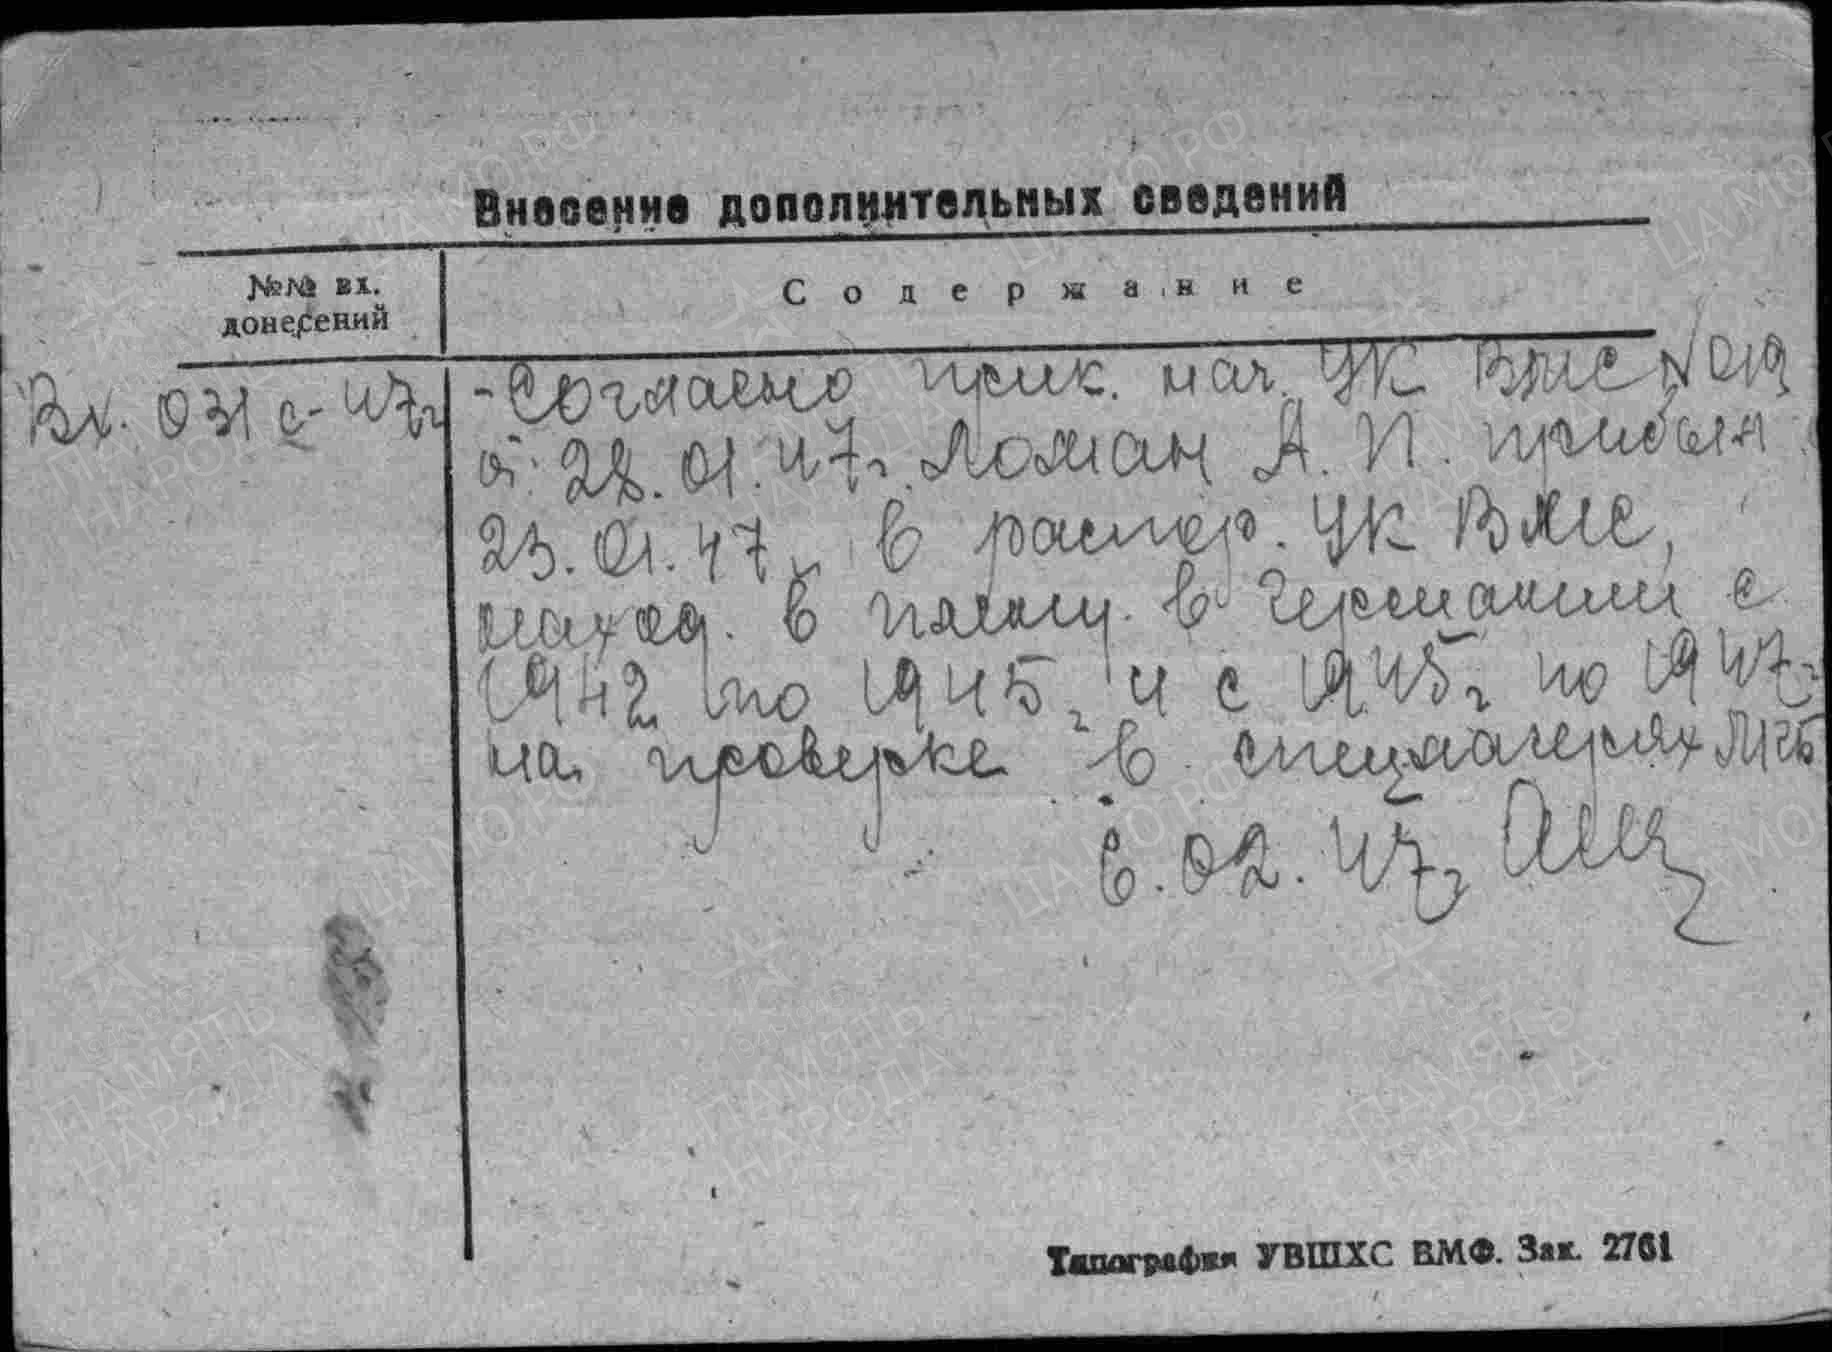 Внесение дополнительных сведений
№№ вх.
донесений
Содержание
Вх. 031 с-47г
-Согласно прик. нач. УК ВМС №019
от 28.01.47г. Ломан А. П. прибыл
23.01.47г. в распор. УК ВМС,
наход. в плену в Германии с
1942 по 1945г. и с 1945г по 1947г
на проверке в спецлагерях МГБ
6.02.47г
Типография УВШХС ВМФ. Зак. 2761